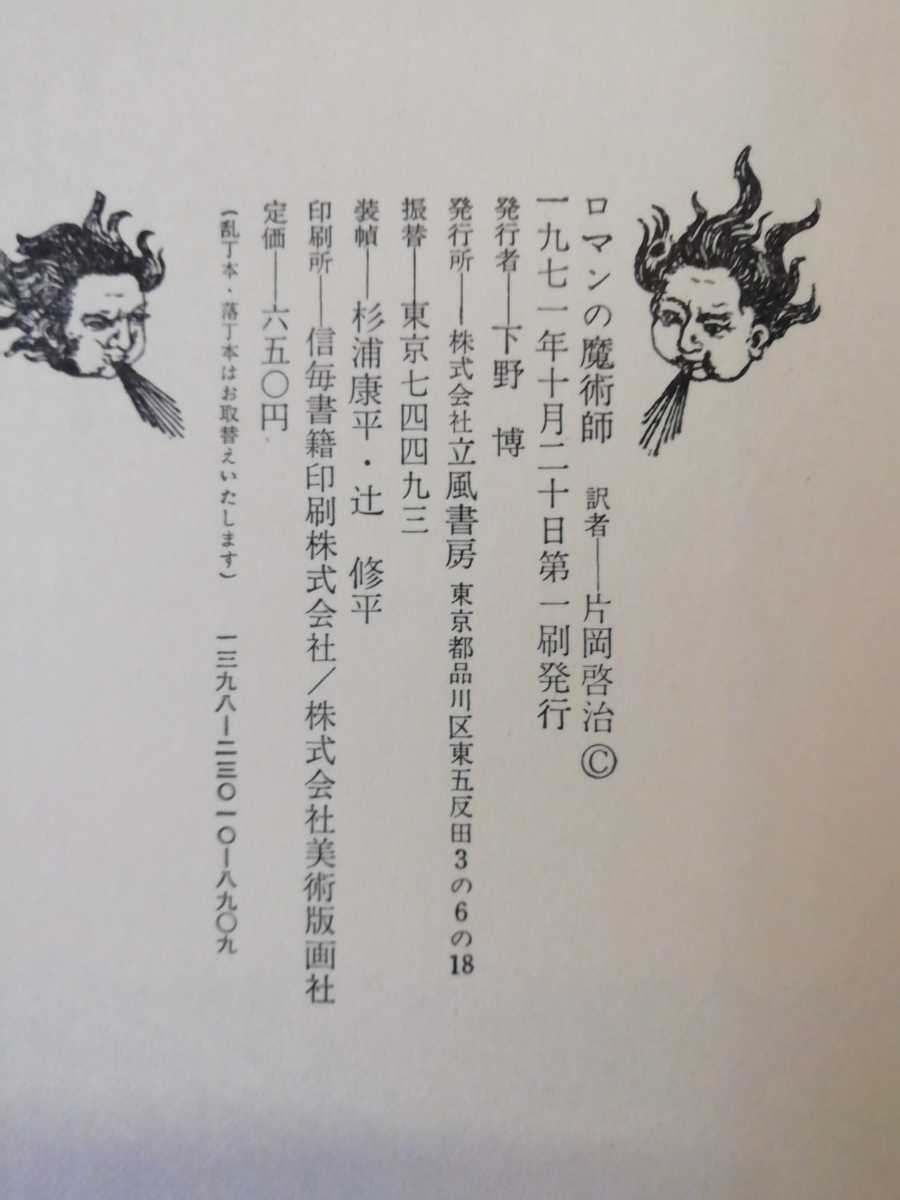 ロマンの魔術師　訳者—片岡啓治Ⓒ
一九七一年十月二十日第一刷発行
発行者—下野　博
発行所—株式会社立風書房　東京都品川区東五反田3の6の18
振替—東京七四四九三
装幀—杉浦康平・辻　修平
印刷所—信毎書籍印刷株式会社／株式会社美術版画社
定価—六五〇円
（乱丁本・落丁本はお取替えいたします）　一三九八—二三〇一〇—八九〇九